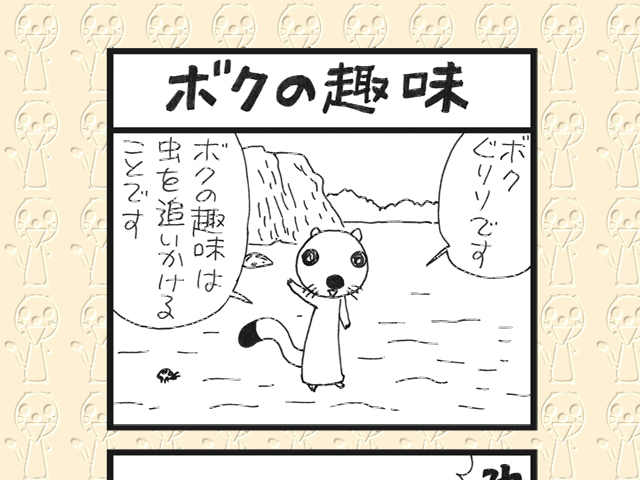 ボクの趣味
ボク
ぐりりです
ボクの趣味は
虫を追いかける
ことです